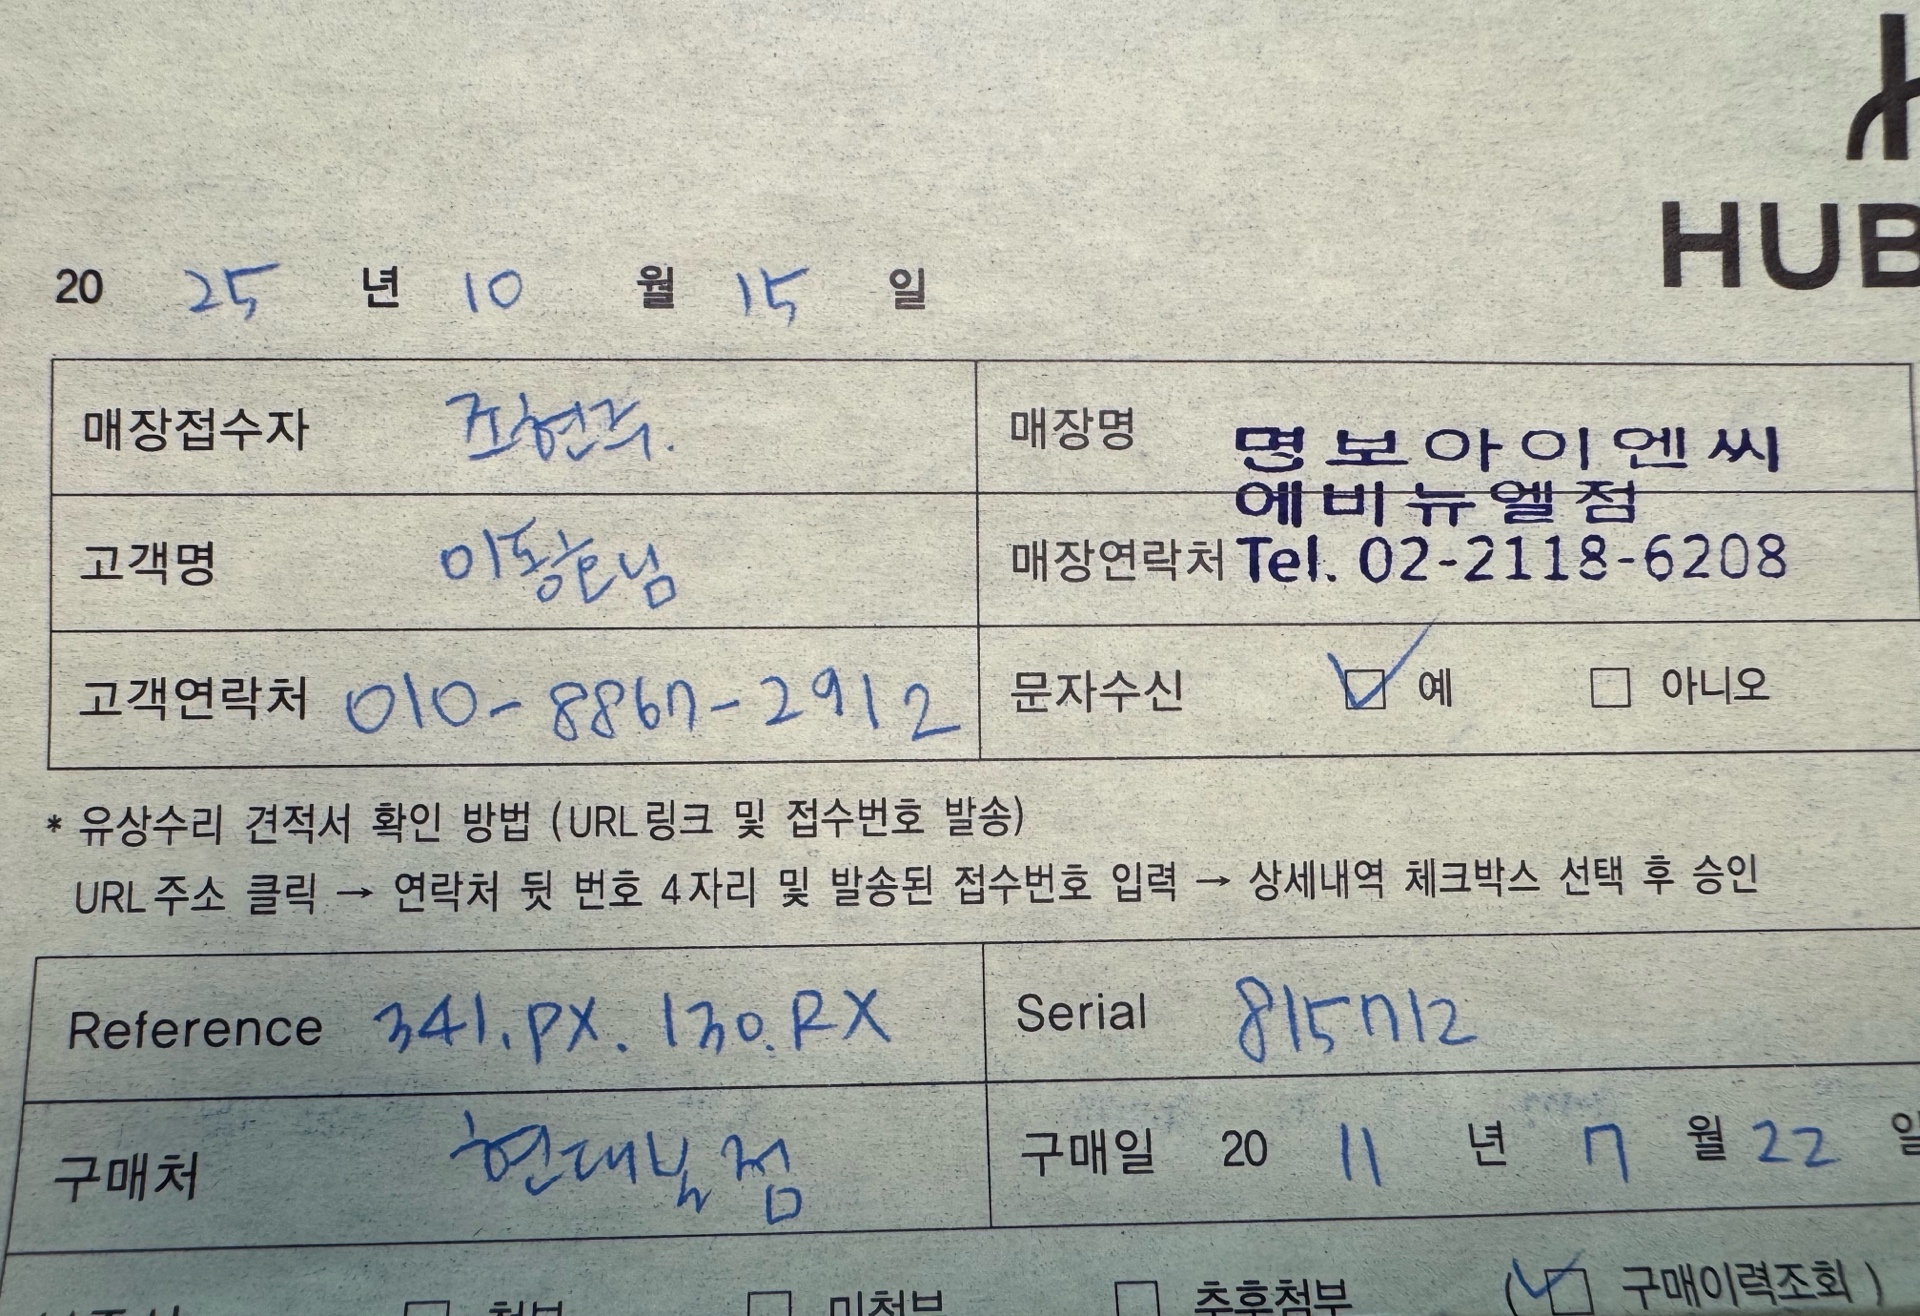 HUB
20 25 년 10 월 15 일
매장접수자 조현주. 매장명 명보아이엔씨
에비뉴엘점
고객명 이동훈님 매장연락처 Tel. 02-2118-6208
고객연락처 010-8867-2912 문자수신 예 아니오
* 유상수리 견적서 확인 방법 (URL링크 및 접수번호 발송)
URL주소 클릭 → 연락처 뒷 번호 4자리 및 발송된 접수번호 입력 → 상세내역 체크박스 선택 후 승인
Reference 341.PX.130.RX Serial 815712
구매처 현대본점 구매일 20 11 년 7 월 22 일
첨부 미첨부 추후첨부 ( 구매이력조회 )